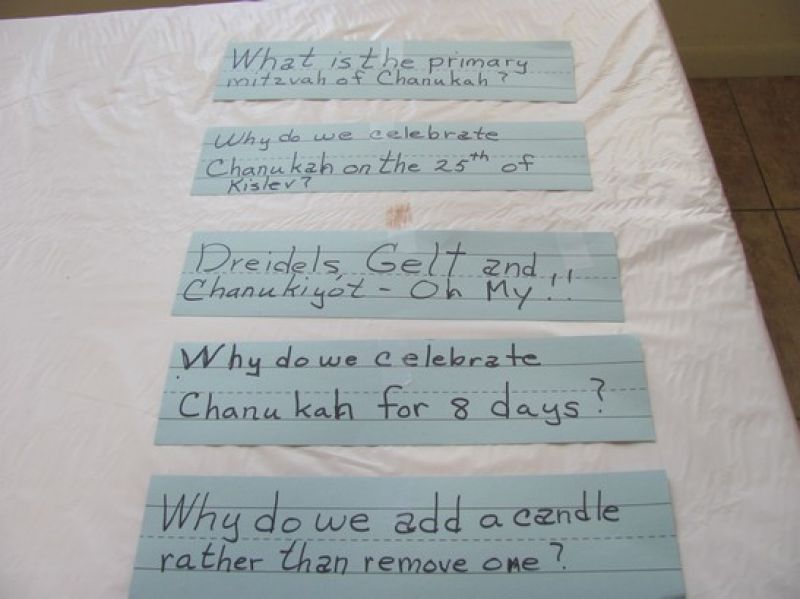 What is the primary
mitzvah of Chanukah?
Why do we celebrate
Chanukah on the 25th of
Kislev?
Dreidels, Gelt and
Chanukiyot - Oh My!!
Why do we celebrate
Chanukah for 8 days?
Why do we add a candle
rather than remove one?